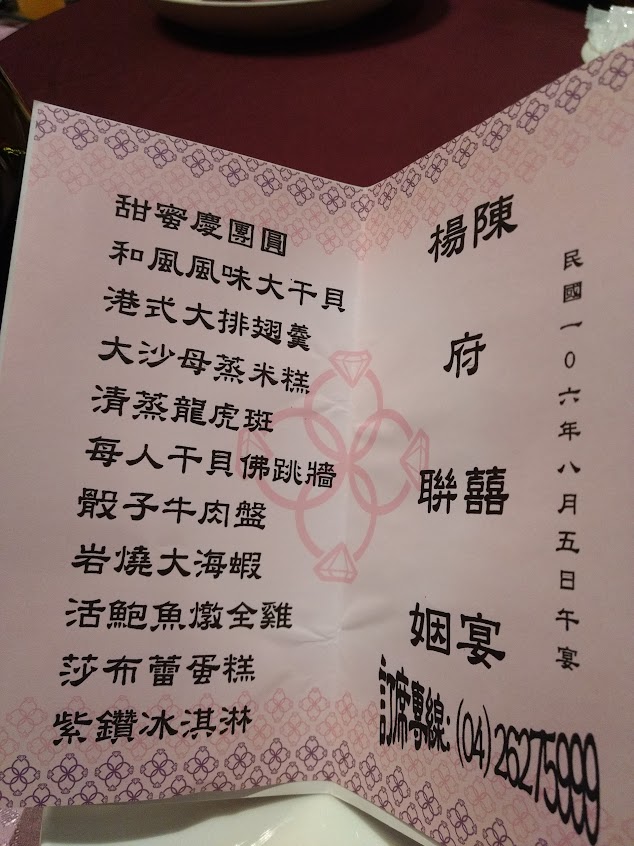 民國一0六年八月五日午宴
陳府囍宴
楊 聯姻
訂席專線:(04)26275999
甜蜜慶團圓
和風風味大干貝
港式大排翅羹
大沙母蒸米糕
清蒸龍虎斑
每人干貝佛跳牆
骰子牛肉盤
岩燒大海蝦
活鮑魚燉全雞
莎布蕾蛋糕
紫鑽冰淇淋